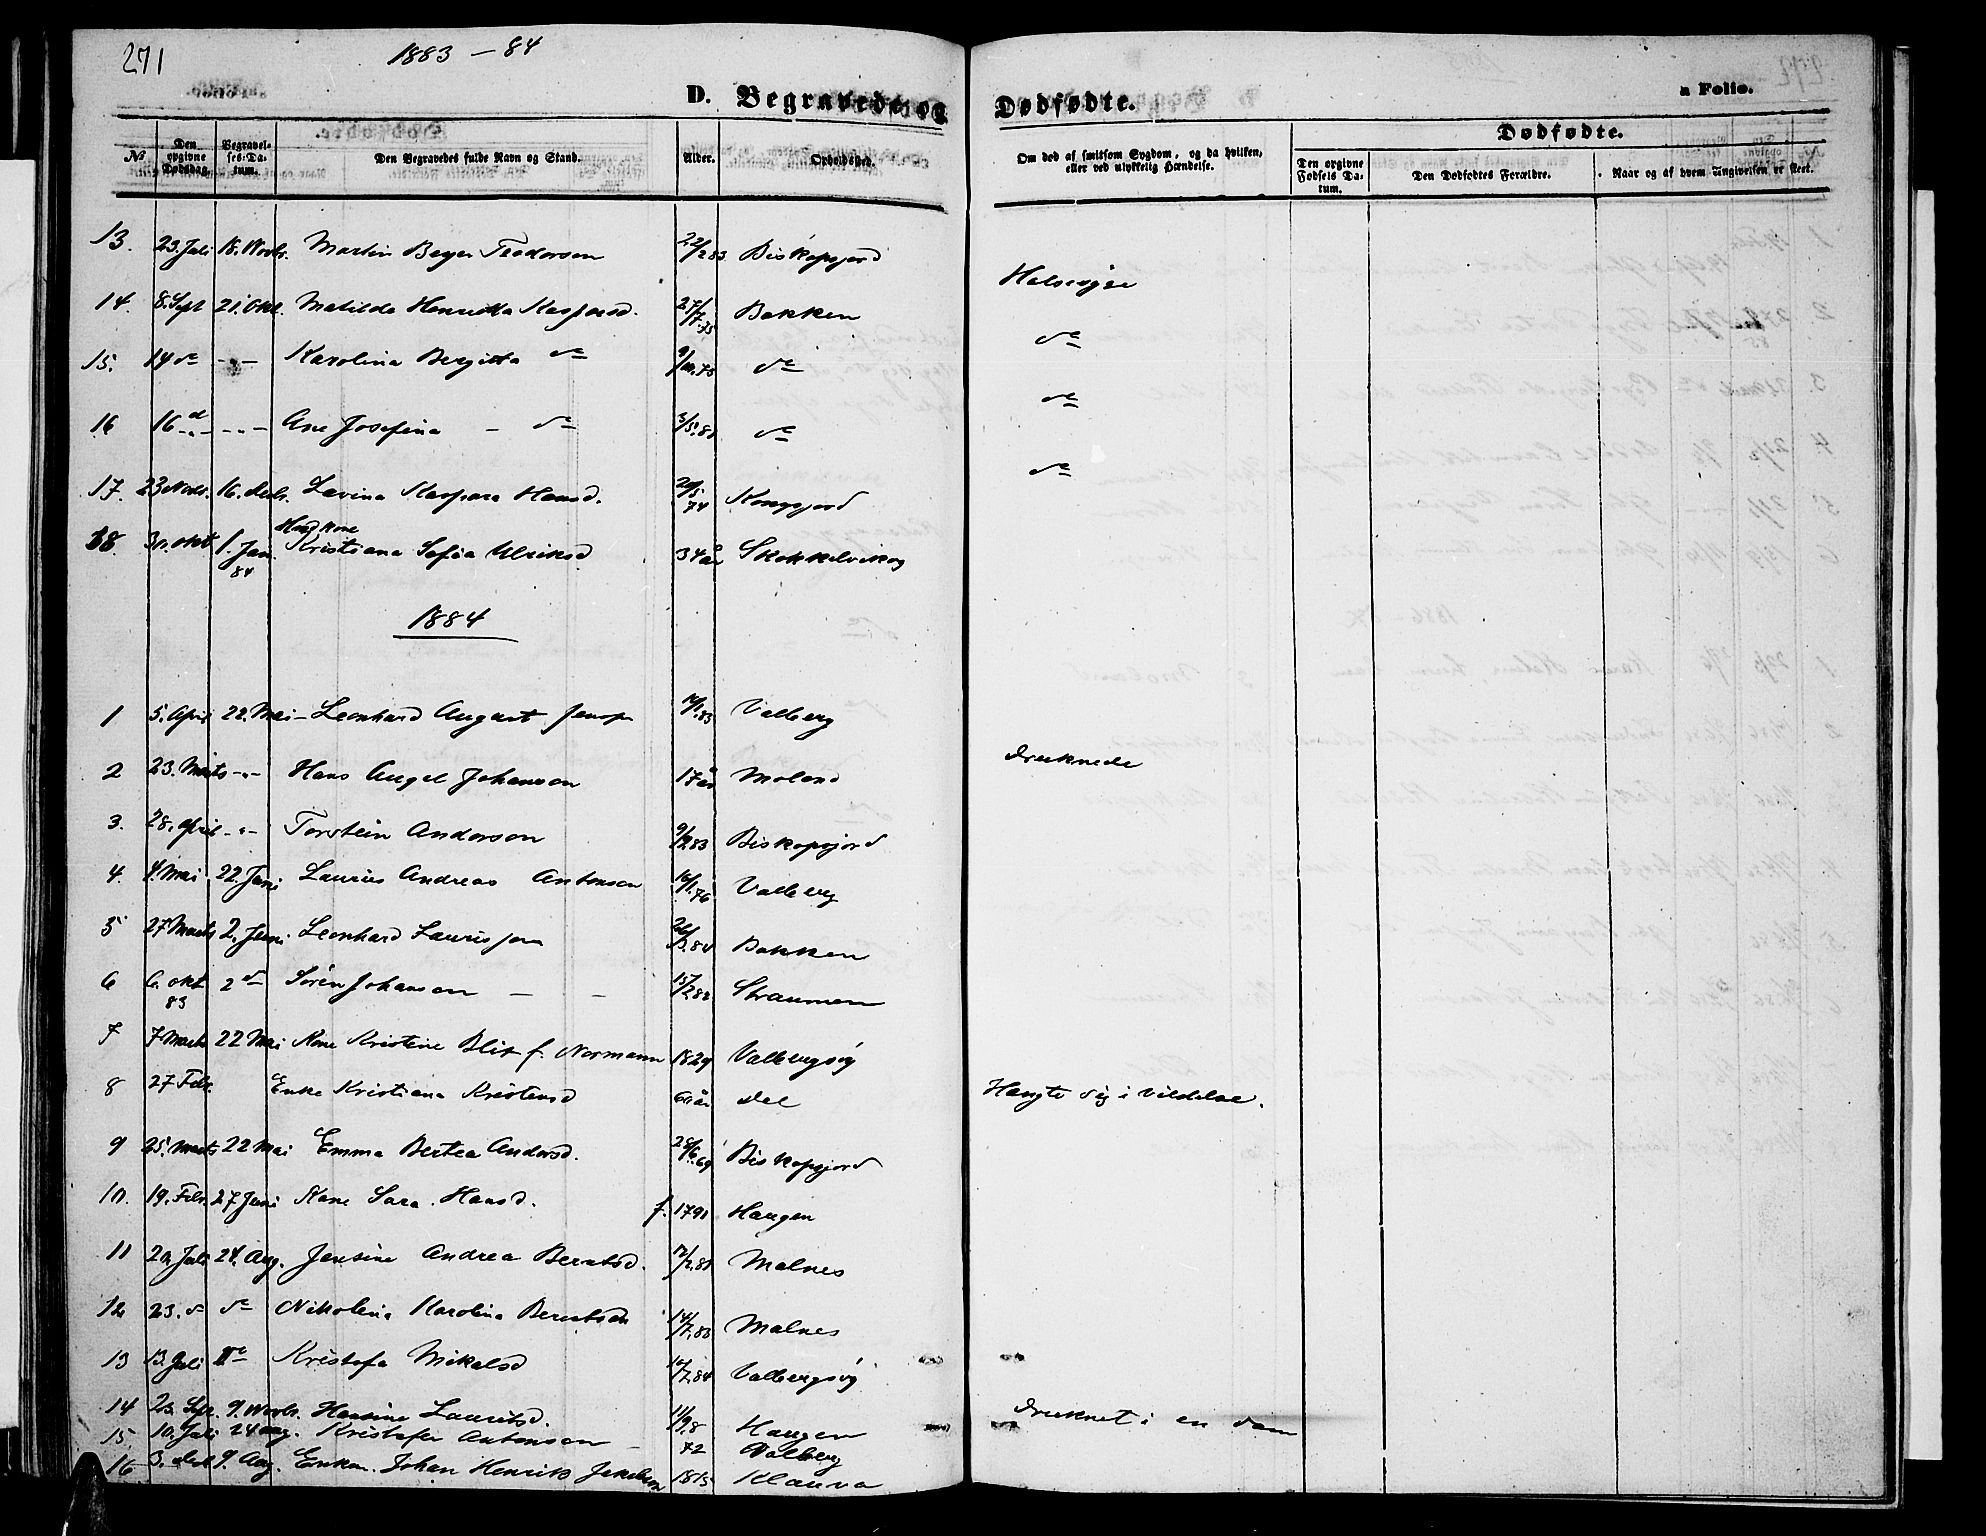 271
1883 – 84
D. Begravede og Dødfødte.
a Folio.
№
Den opgivne Dødsdag.
Begravelses-Datum.
Den Begravedes fulde Navn og Stand.
Alder.
Opholdssted.
Om død af smitsom Sygdom, og da hvilken, eller ved ulykkelig Hændelse.
Dødfødte.
Den opgivne Fødsels Datum.
Den Dødfødtes Forældre.
Naar og af hvem Angivelsen er skeet.
13. 23. Juli 18. Novbr. Martin Beyer Teodorson 22/2 83 Biskopsjord
Halssyge
14. 8. Sept 21. Okt. Matilda Henrietta Kaspersd. 27/7 75 Bakken
do
15. 14 do - - Karolina Bergitta do do
do
16 16 d - - - Ane Josefina – do 3/5 81 do
do
17. 23 Novbr. 16. Decbr. Lavina Kaspara Hansd. 74 Kongsjord
18. 30. Okt 1. Jan. 84 Husm kone Kristiana Sofia Ulriksd 34 år Skokkelvikog
1884
1 5. April 22. Mai – Leonhard August Jensen 83 Valberg
2 23. Marts -"- Hans Angel Johanson 17 år Moland
druknede
3. 28. April -"- Torstein Anderson 9/2 83 Biskopsjord
4. 4. Mai 22. Juni Laurits Andreas Antonson 16/1 76 Valberg
5 27 Marts 2. Juni Leonhard Laurisson 84 Bakken
6 6. okt 83 2 do Sören Johanson – – 15/2 82 Straumen
7 7 Marts 22 Mai Kone Kristine Blix f. Normann 1829 Valbergsög
8 27 Febr. Enke Kristiana Kristensd år del
Hængte sig i Vildelse.
9 25. Marts 22 Mai Emma Bertea Andersd. 28/6 69 Biskopsjord
10. 19. Febr. 27 Juni Kone Sara Hansd. f. 1791 Haugen
11 20. Juli 24. Aug. Jensine Andrea Berntsd. 81 Malnes
12 23. do do Nikolina Karolina Berntsen 14/7 83 Malnes
13 13. Juli do Kristofa Mikalsd 84 Valbergsög
14 23. Sept. 9. Novbr. Hansine Lauritsd. 11/9 8 Haugen
druknet i en dam
15. 10. Juli 24 aug. Kristofer Antonson 72 Valberg
16 3. 9. Aug. Enkm. Johan Henrik Jakobson 1815 Klauva